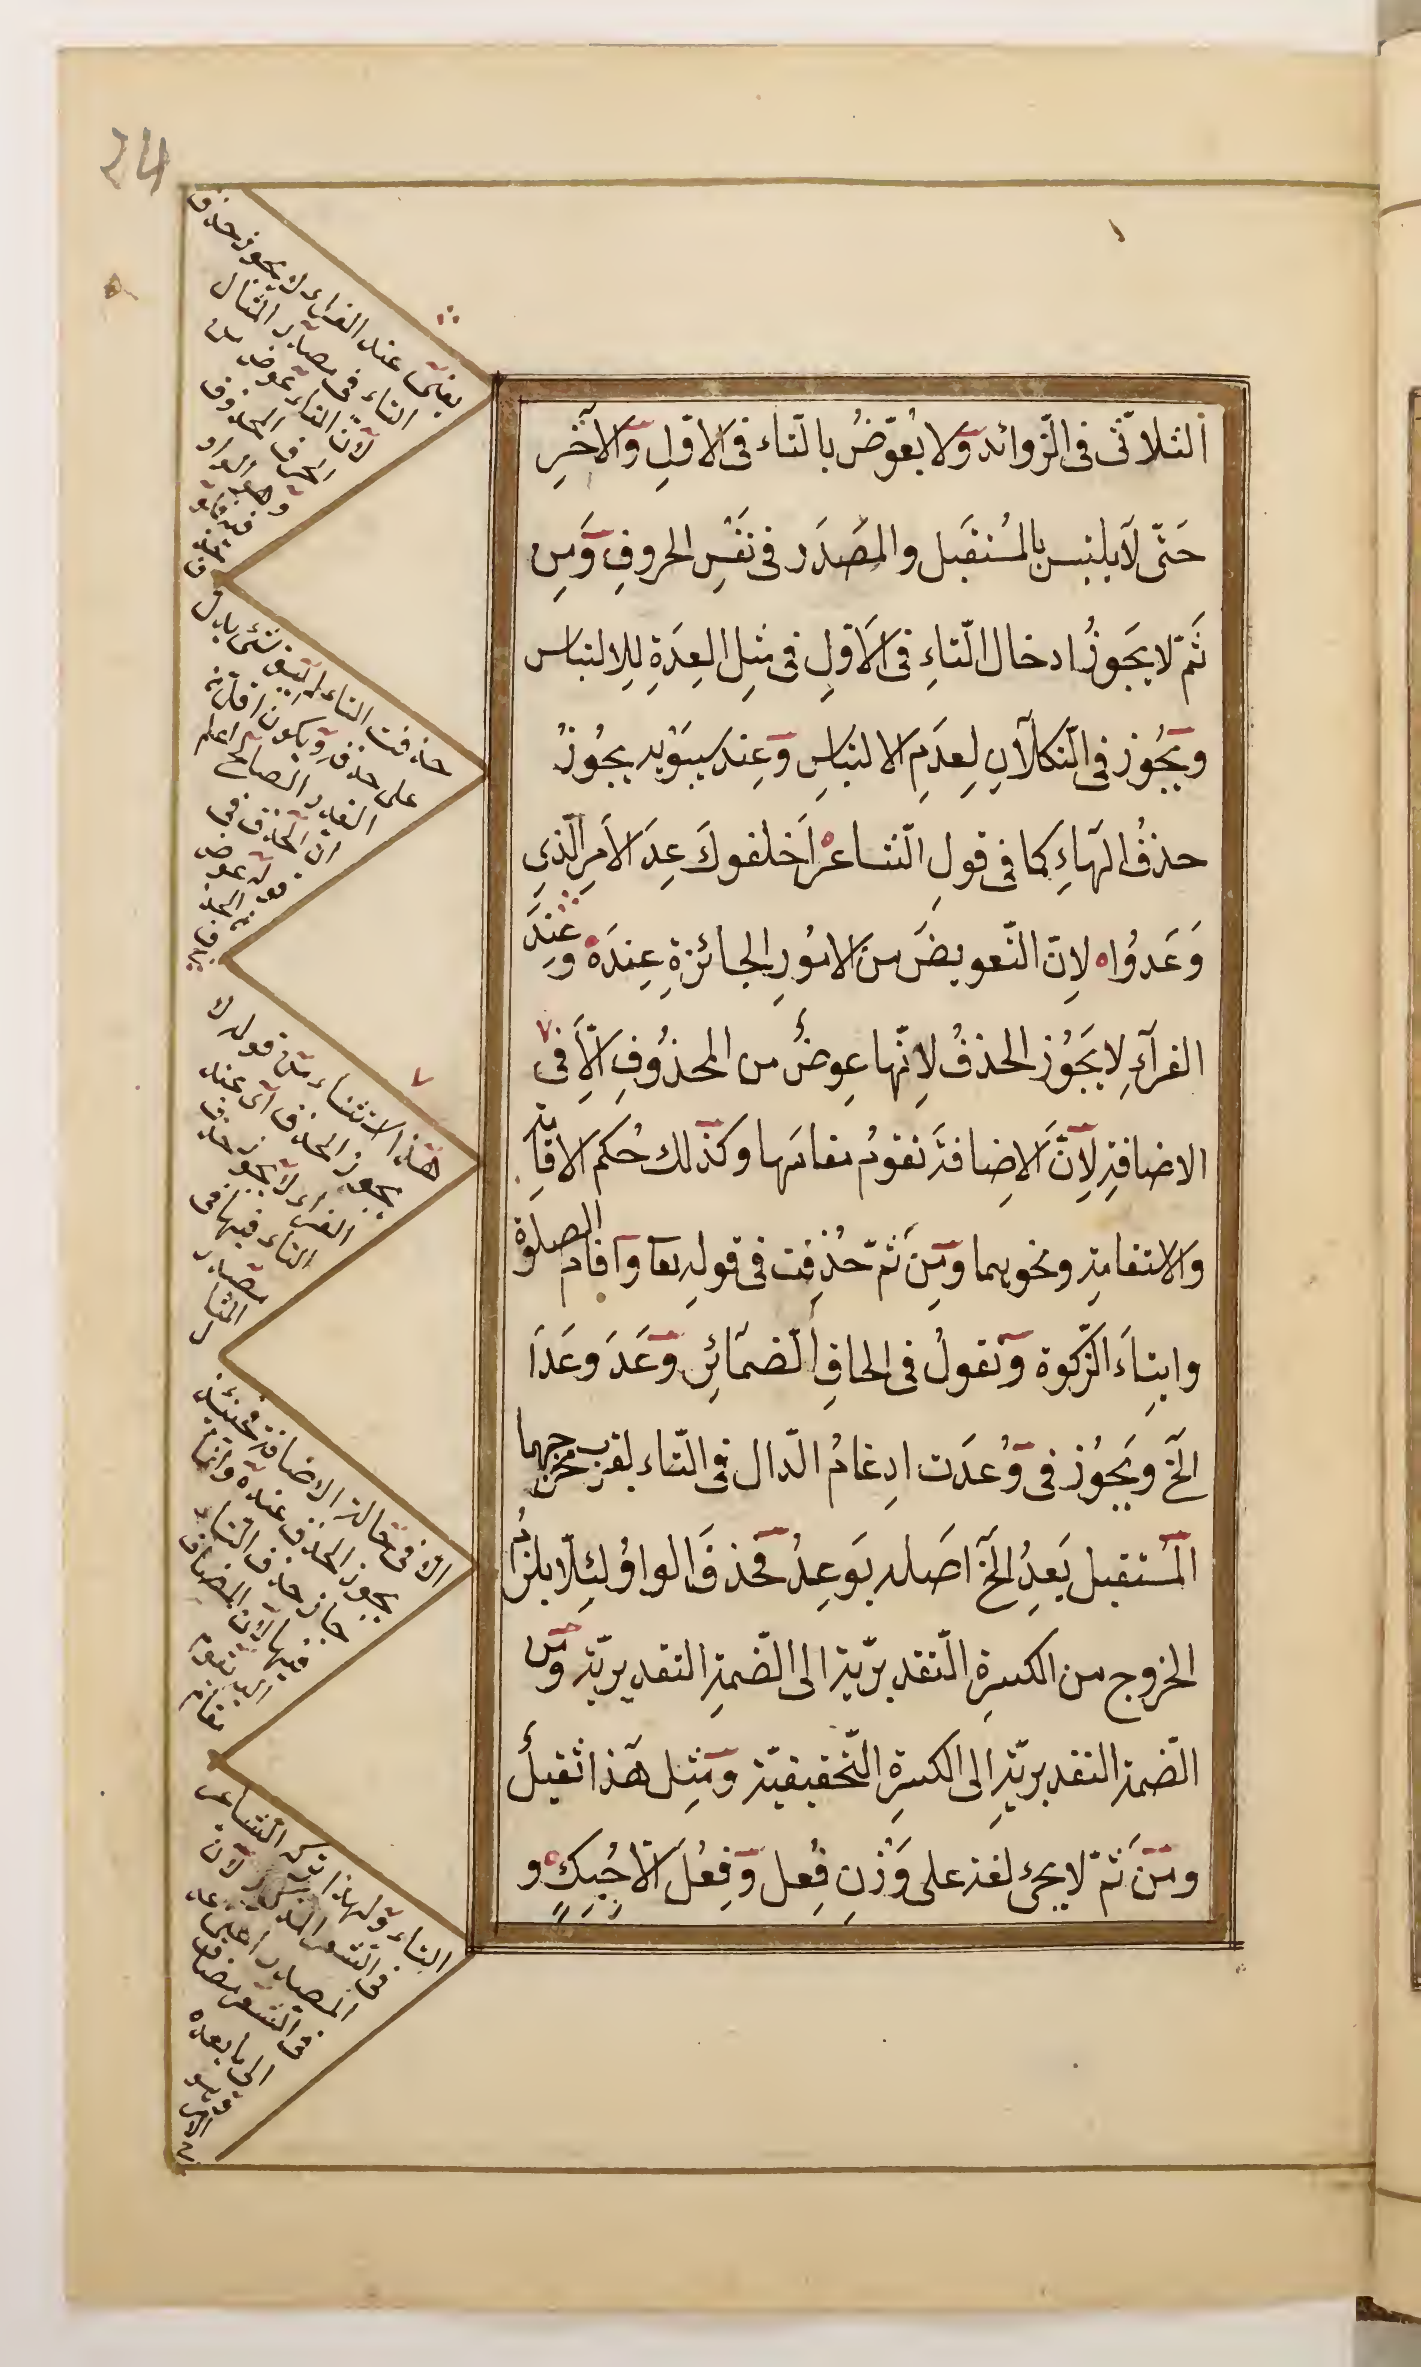 24
الثلاثى فى الزّوائد ولا يُعوّضُ بالتاء فى الاوّلِ والآخرِ
حَتّى لا يلتبس بالمُستقبَل والمَصْدَر فى نَفْسِ الحروفِ وَمِن
ثَمّ لا يَجوزُ ادخال التّاءِ فى الاَوّلِ فى مثِلِ العِدَةِ لِلالتباس
ويَجُوز فى التّكلآنِ لِعدَمِ الالتباسِ وَعِند سيبَوْيه يجُوزُ
حذفُ الهاءِ كما فى قولِ الشاعر اَخلفوكَ عِدَ الاَمرِ الّذى
وَعَدوُا لِانّ التّعويضَ من الامُورِ الجائزةِ عِندَهُ وعِندَ
الفرّآءِ لا يَجَوُز الحذفُ لِانّها عِوضٌ من المحذُوفِ الِاَّ فى
الاضافةِ لِاَنَّ الاِضافَة تقومُ مقامَها وكذلك حُكم الاِقامة
والاستقامةِ ونحوِهما ومِن ثمّ حُذِفت فى قولهِ تعا واقام الصلوة
وايتِاَء الزّكوة وتقولُ فى الحاقِ الضمائِرِ وَعَدَ وعَدَا
الخ ويَجوُز فى وُعدَت ادِغامُ الدّال فى التّاء لقرب مخرجهما
المُستقبل يَعدُِ الخ اصَله يَوعِدُ فحذفَ الواوُ لئِلّا يلزمُ
الخروج من الكسرةِ التّقديريّة الى الضّمةِ التقديريّة ومن
الضّمة التقديريّةِ الى الكسرةِ التّحقيقيّة ومثِل هذا ثقيلٌ
ومن ثَمّ لا يجئ لغة على وَزْنِ فِعُل وَفُعِلَ الاّ حُبِكٍ و
عند الفراء لا يجوز حذف
التاء فى مصادر المثال
لانّ التاء عوض من
الحرف المحذوف
وهو الواو
حذفت التاء
على حذفه ويكون
انّ الحذف فى
هذا الاستثناء من قوله لا
يجوز الحذف اى عند
الفراء لا يجوز حذف
التاء فيها فى
مصادر
المثال
الّا فى حالة الاضافة فحينئذ
يجوز الحذف عنده وانما
جاز حذف التاء
فيها لانّ المضاف
اليه تقوم
مقام
التاء ولهذا ترك الشاعر
فى الشعر
المصادر اعنى عد
فى الشعر مضاف
الى ما بعده
وهو
الامر